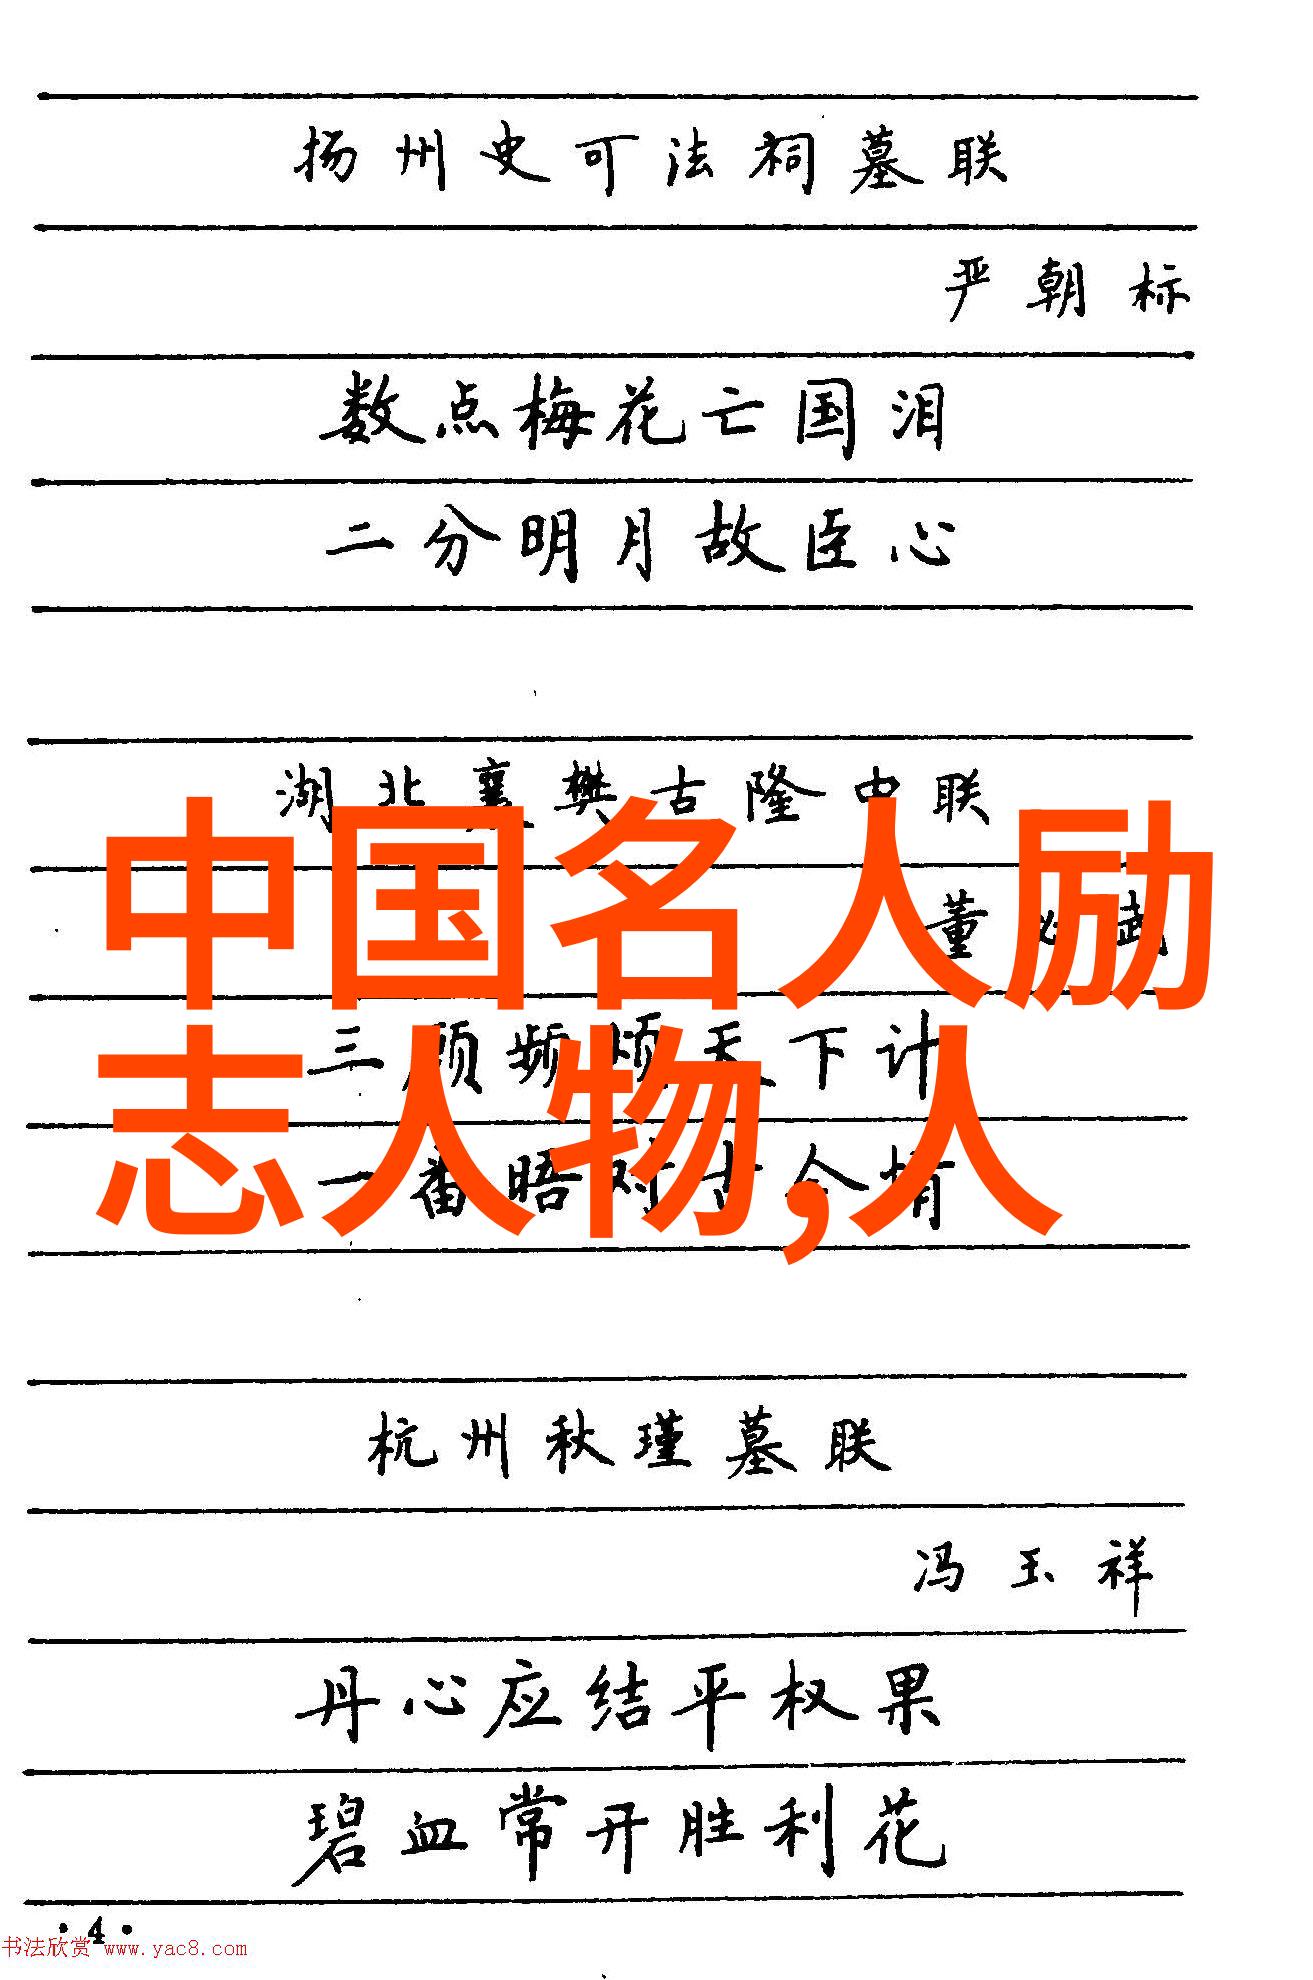 扬州史可法祠墓联
严朝标
数点梅花亡国泪
二分明月故臣心
湖北襄樊古隆中联
中国名人励
董必武
三顾频烦天下计
志人物,人
一番晤对古今情
杭州秋瑾墓联
冯玉祥
丹心应结平权果
碧血常开胜利花
·4·
书法欣赏 www.yac8.com